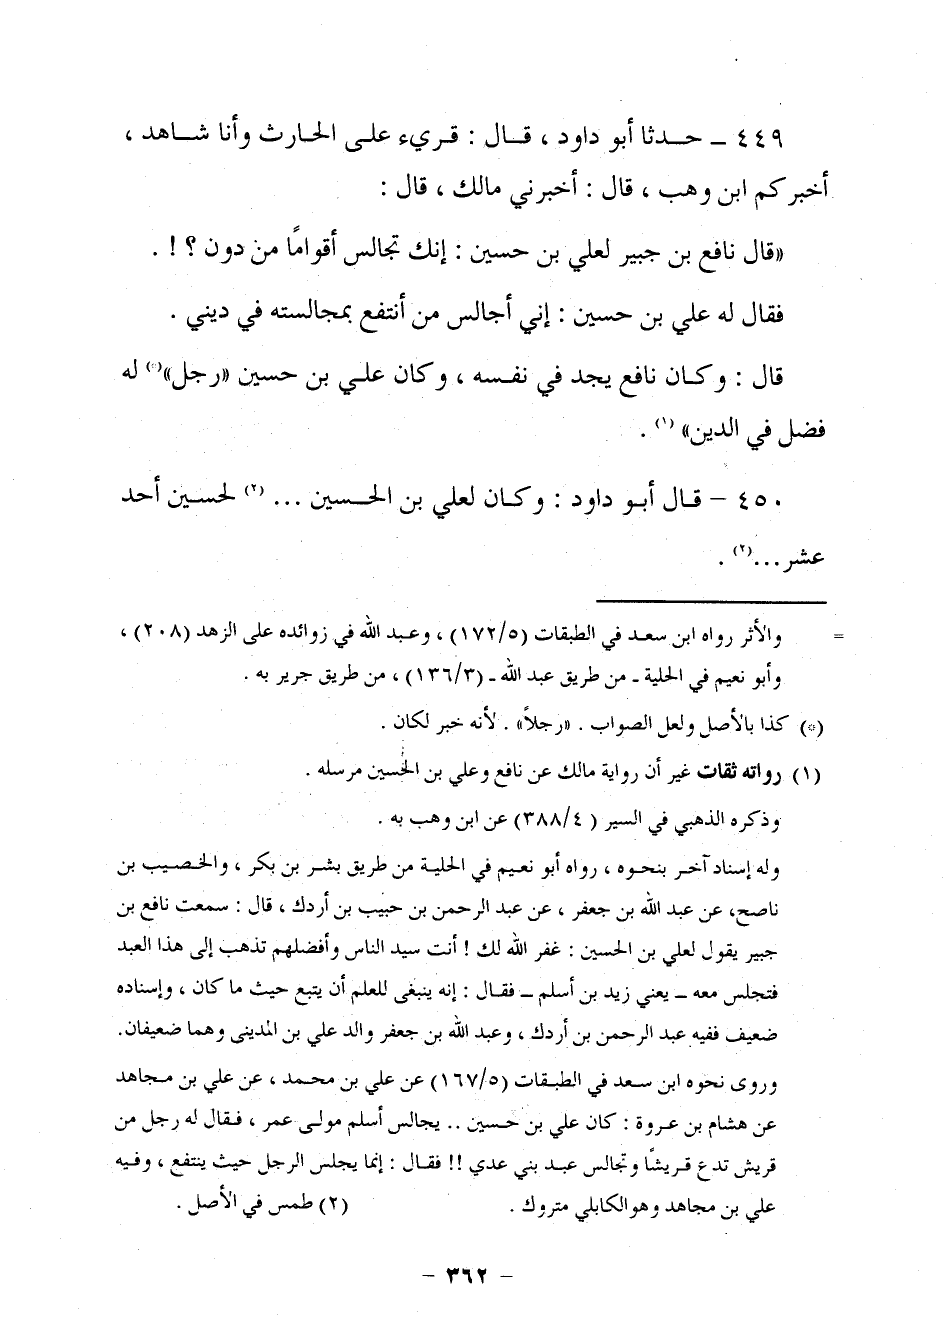 ٤٤٩ ـ حـدثا أبو داود ، قـال : قـريء على الحارث وأنا شاهد ،
أخبركم ابن وهب ، قال : أخبرني مالك ، قال :
«قال نافع بن جبير لعلي بن حسين : إنك تجالس أقوامًا من دون ؟ ! .
فقال له علي بن حسين : إني أجالس من أنتفع بمجالسته في ديني .
قال : وكـان نافع يجد في نفـسه ، وكان علـي بن حسين «رجل»(*) له
فضل في الدين» (١) .
٤٥٠ - قـال أبـو داود : وكـان لعلي بن الحـسـين ... (٢) لحسـين أحد
عشر ...(٢) .
= والأثر رواه ابن سعـد في الطبقات (١٧٢/٥) ، وعـبد الله في زوائده على الزهد (٢٠٨) ،
وأبو نعيم في الحلية ـ من طريق عبد الله ـ (١٣٦/٣) ، من طريق جرير به .
(*) كذا بالأصل ولعل الصواب . «رجلاً» . لأنه خبر لكان .
(١) رواته ثقات غير أن رواية مالك عن نافع وعلي بن الحسين مرسله .
وذكره الذهبي في السير ( ٣٨٨/٤) عن ابن وهب به .
وله إسناد آخـر بنحـوه ، رواه أبو نعيم في الحلية من طريق بشر بن بكر ، والخصيب بن
ناصح، عن عبد الله بن جعفر ، عن عبد الرحمن بن حبيب بن أردك ، قال : سمعت نافع بن
جبير يقول لعلي بن الحسين : غفر الله لك ! أنت سيد الناس وأفضلهم تذهب إلى هذا العبد
فتجلس معه ـ يعني زيد بن أسلم ـ فقـال : إنه ينبغي للعلم أن يتبع حيث ما كان ، وإسناده
ضعيف ففيه عبد الرحمن بن أردك ، وعبد الله بن جعفر والد علي بن المديني وهما ضعيفان.
وروى نحوه ابن سـعد في الطبقات (١٦٧/٥) عن علي بن محـمد ، عن علي بن مـجاهد
عن هشام بن عـروة : كان علي بن حـسين .. يجالس أسلم مولـى عمر ، فـقال له رجل من
قريش تدع قـريشًا وتجالس عبـد بني عدي !! فقـال : إنما يجلس الرجل حيث ينتفع ، وفـيه
علي بن مجاهد وهو الكابلي متروك . (٢) طمس في الأصل .
- ٣٦٢ -